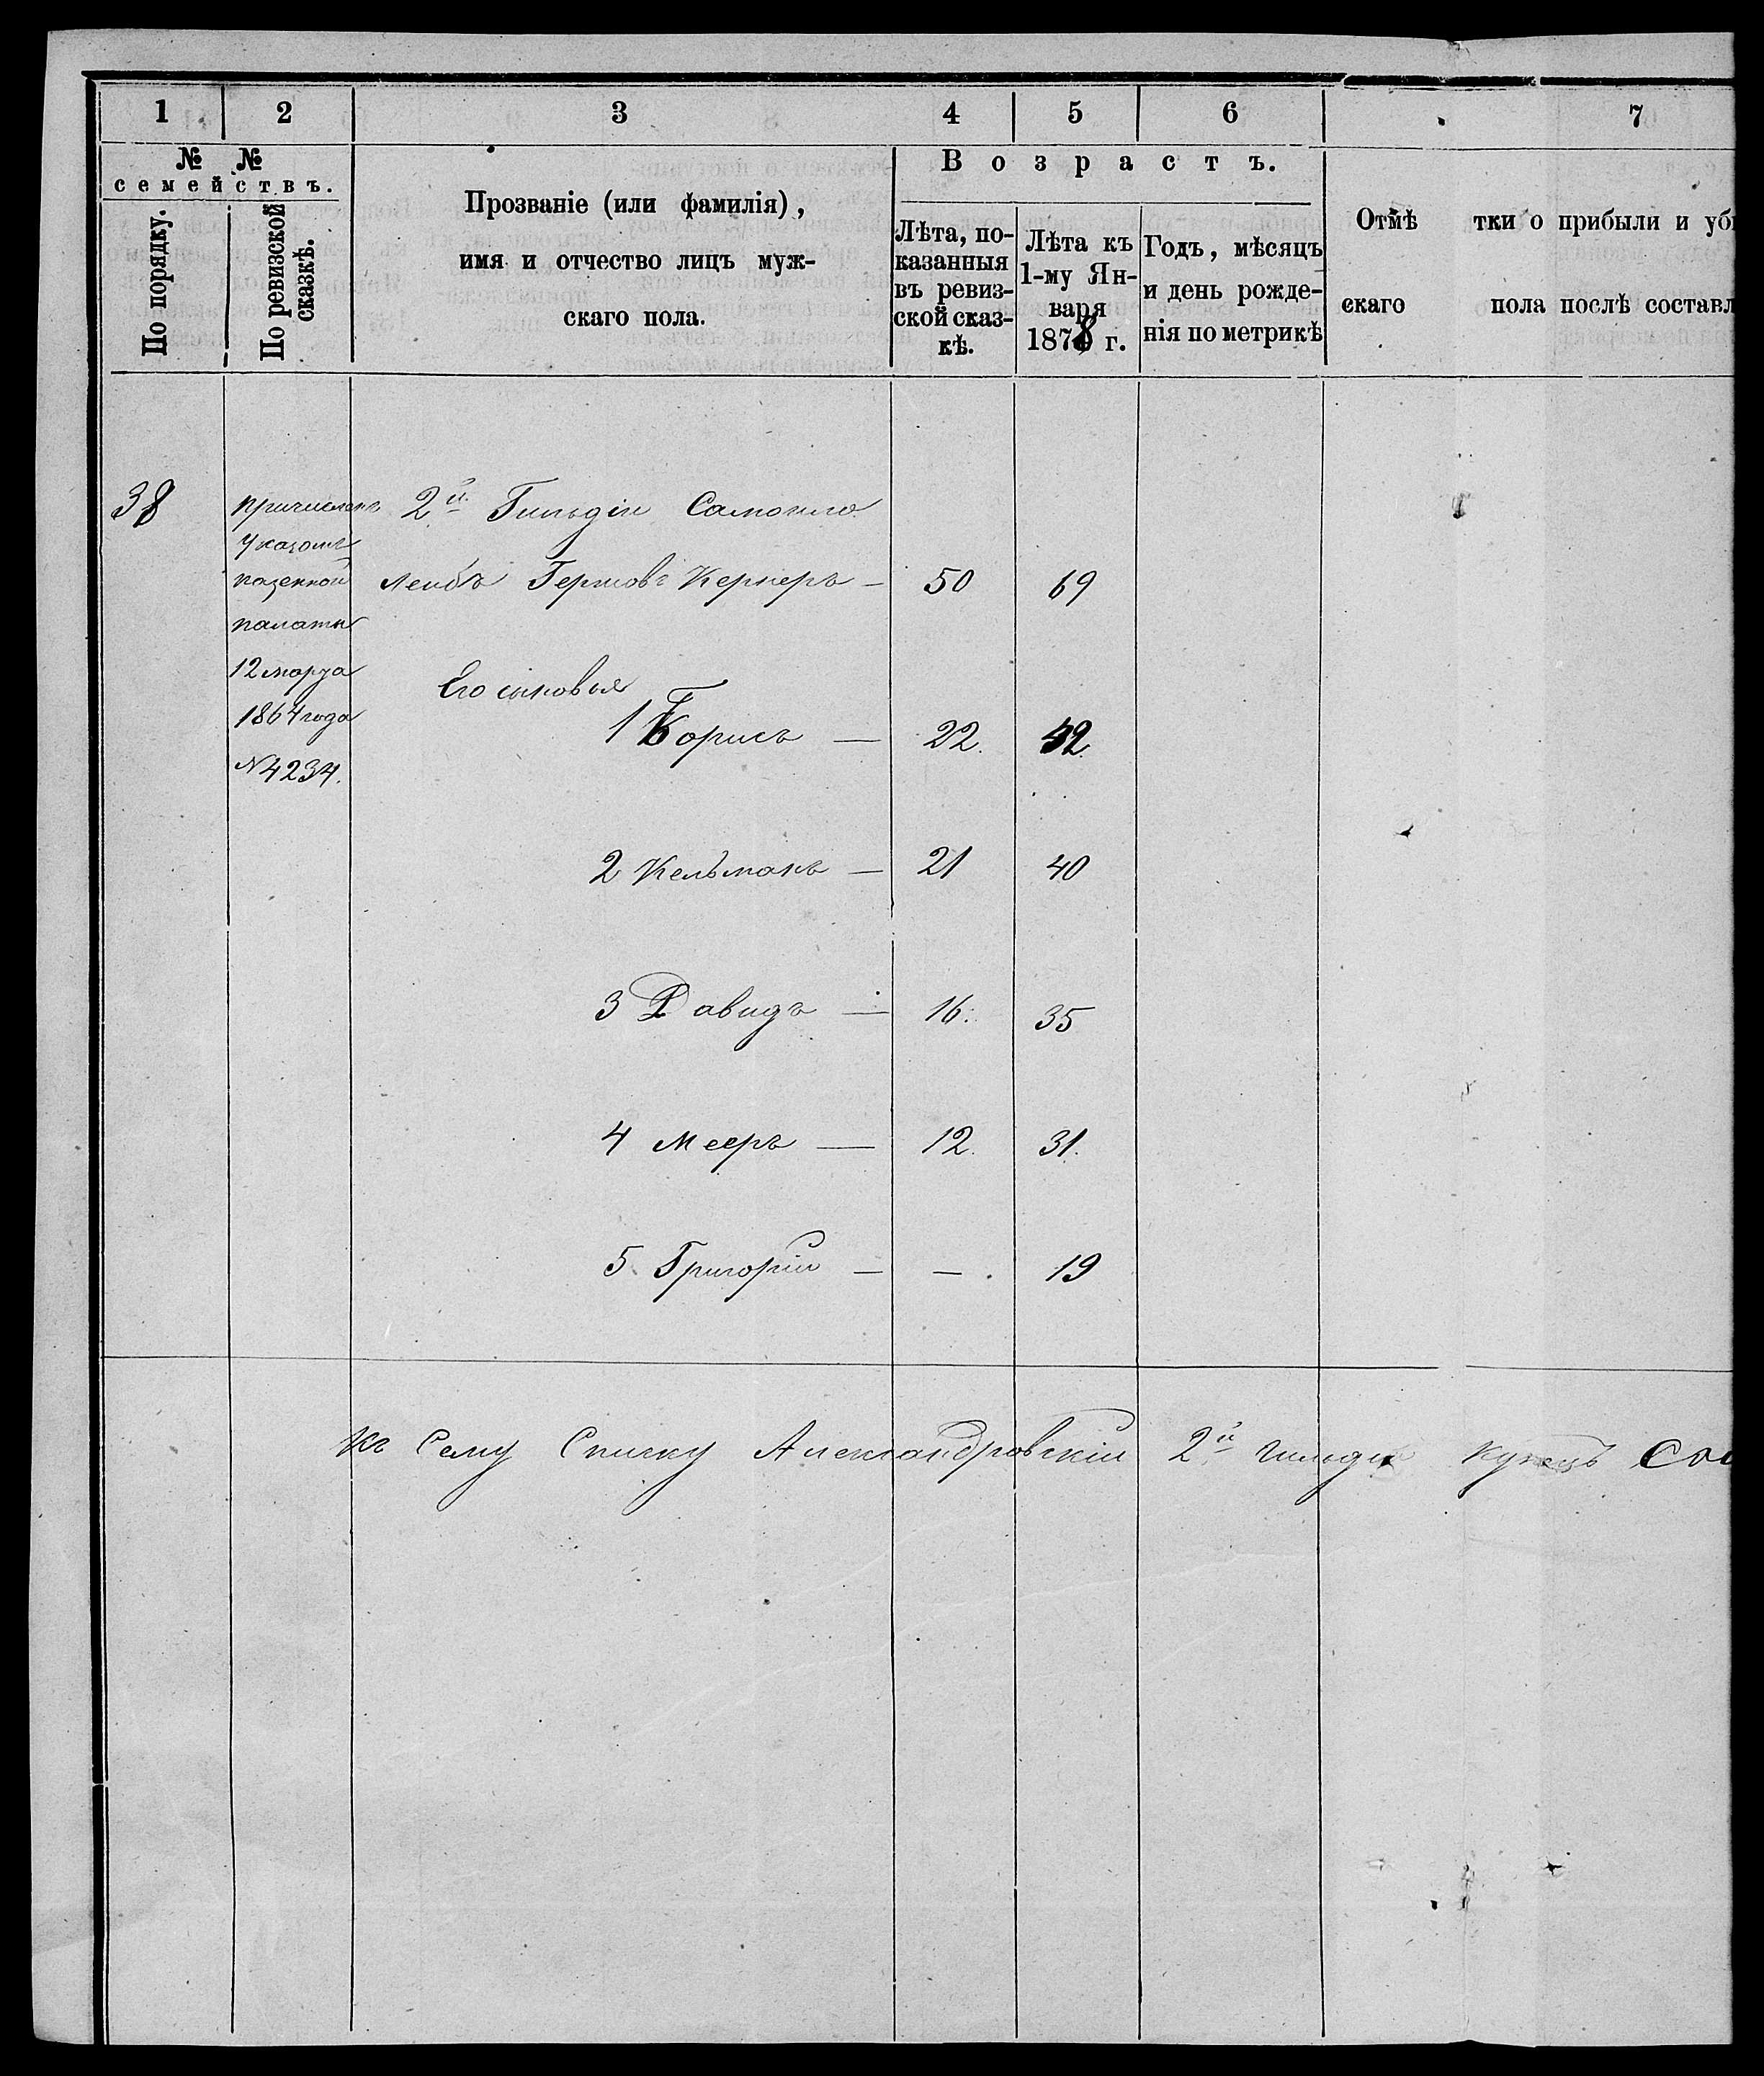 1 2 3 4 5 6 7
№ № семействъ.
По порядку.
По ревизской сказкѣ.
Прозваніе (или фамилія),
имя и отчество лицъ муж-
скаго пола.
Возрастъ.
Лѣта, по-
казанныя
въ ревиз-
ской сказ-
кѣ.
Лѣта къ
1-му Ян-
варя
1878 г.
Годъ, мѣсяцъ
и день рожде-
нія по метрикѣ
Отмѣ тки о прибыли и уб
скаго пола послѣ составл
38
причисленъ
Указомъ
казенной
палаты
12 марта
1864 года
№ 4234.
2й Гильдіи
Лейбъ Гершовъ Кернеръ — 50 69
Его сыновья
1 Борисъ — 22. 42.
2 Кельманъ — 21 40
3 Давидъ — 16. 35
4 Мееръ — 12. 31.
5 Григорій — — . 19
Къ Сему Списку Александровскій 2й гильдіи купецъ